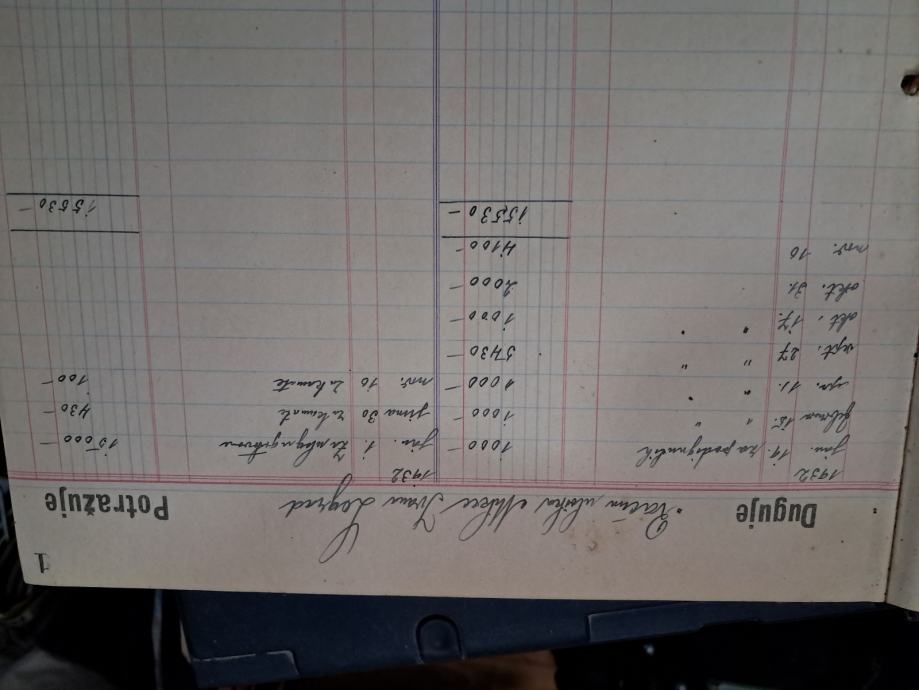 1
Duguje Račun uloška Ivan Legrad Potražuje
1932
jan. 14. za podignutih 1000 –
februar 15. " " 1000 –
apr. 11. " " 1000 –
sept. 27 " " 5430 –
okt. 17. " " 1000 –
okt. 31. 2000 –
nov. 10 4100 –
15530 –
1932
jan. 1. 15000 –
juna 30 za kamate 430 –
nov. 10 za kamate 100 –
15530 –